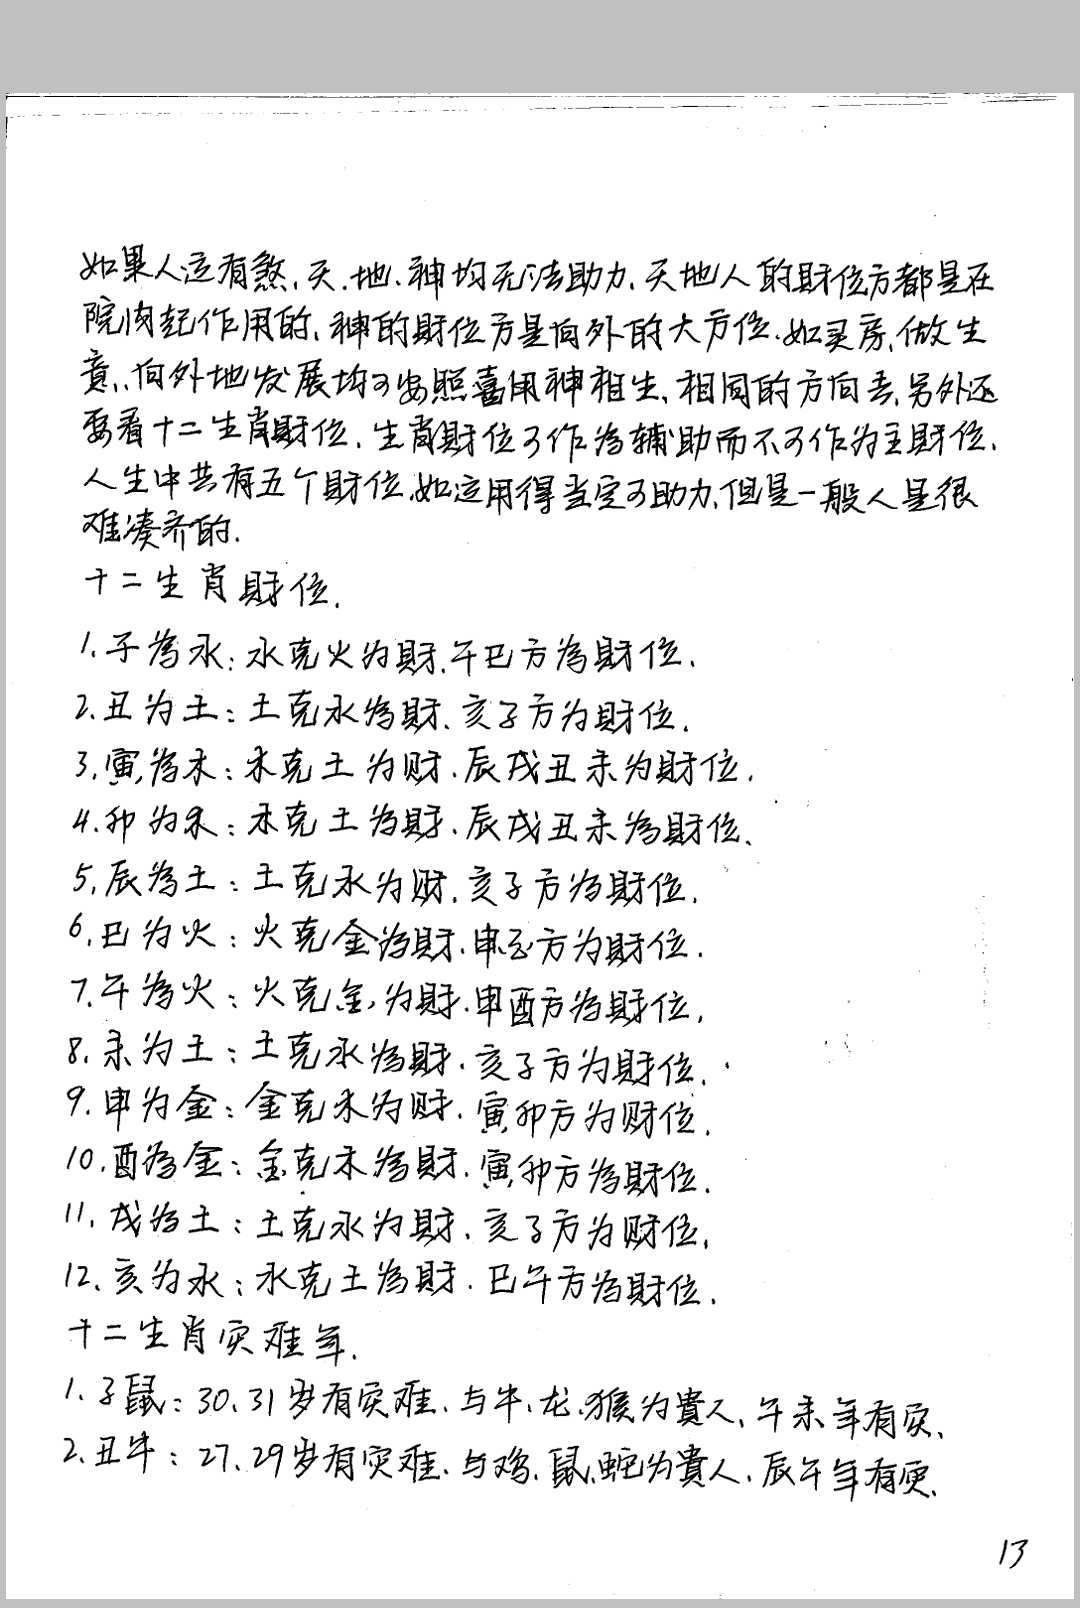 如果人这有煞、天、地、神均无法助力、天地人的财位方都是在
院内起作用的、神的财位方是向外的大方位、如买房、做生
意、向外地发展均可按照喜用神相生、相同的方向去、另外还
要看十二生肖财位、生肖财位可作為辅助而不可作为主财位、
人生中共有五个财位、如运用得当定可助力、但是一般人是很
难凑齐的.
十二生肖財位.
1、子為水:水克火为財、午巳方為財位、
2、丑为土:土克水為財、亥子方为財位、
3、寅為木:木克土为财、辰戌丑未为財位、
4、卯为木:木克土為財、辰戌丑未為財位、
5、辰為土:土克水为财、亥子方為財位、
6、巳为火:火克金為財、申酉方为財位.
7、午為火:火克金为財、申酉方為財位、
8、未为土:土克水為財、亥子方为財位、
9、申为金:金克木为财、寅卯方为财位.
10、酉為金:金克木為財、寅卯方為財位.
11、戌為土:土克水为財、亥子方为财位、
12、亥为水:水克土為財. 巳午方為財位.
十二生肖灾难年.
1、子鼠:30、31岁有灾难、与牛、龙、猴为貴人、午未年有灾、
2、丑牛:27、29岁有灾难、与鸡、鼠、蛇为貴人、辰午年有灾.
13